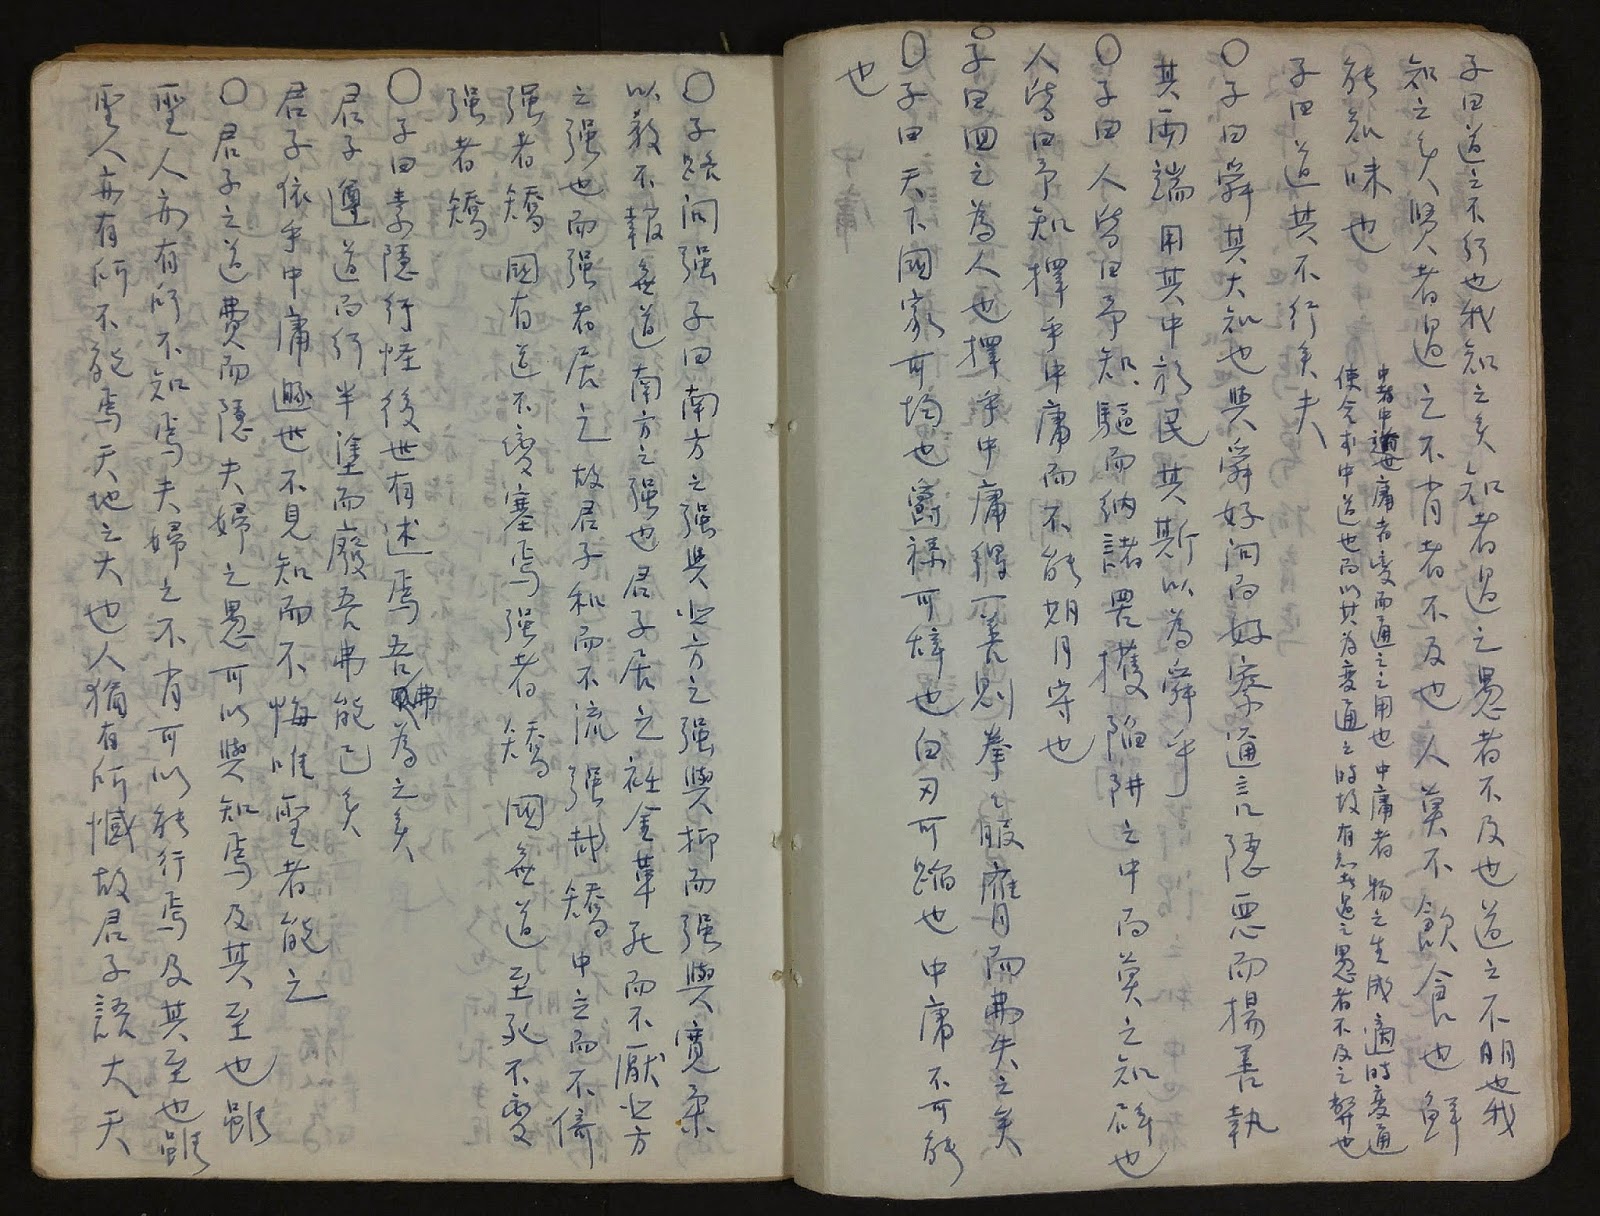 子曰道之不行也我知之矣知者過之愚者不及也道之不明也我
知之矣賢者過之不肖者不及也人莫不飲食也鮮
能知味也
中者中道也庸者變而通之之用也中庸者物之生成適時變通
使合乎中道也而以其為變通之時故有知者過之愚者不及之弊也
子曰道其不行矣夫
○子曰舜其大知也與舜好問而好察邇言隱惡而揚善執
其兩端用其中於民其斯以為舜乎
○子曰人皆曰予知驅而納諸罟擭陷阱之中而莫之知辟也
人皆曰予知擇乎中庸而不能期月守也
○子曰回之為人也擇乎中庸得一善則拳々服膺而弗失之矣
○子曰天下國家可均也爵祿可辭也白刃可蹈也中庸不可能
也
○子路問强子曰南方之强與北方之强與抑而强與寬柔
以教不報無道南方之强也君子居之衽金革死而不厭北方
之强也而强者居之故君子和而不流强哉矯中立而不倚
强者矯 國有道不變塞焉强者矯國無道至死不變
强者矯
○子曰素隱行怪後世有述焉吾弗為之矣
君子遵道而行半塗而廢吾弗能已矣
君子依乎中庸遯世不見知而不悔唯聖者能之
○君子之道費而隱夫婦之愚可以與知焉及其至也雖
聖人亦有所不知焉夫婦之不肖可以能行焉及其至也雖
聖人亦有所不能焉天地之大也人猶有所憾故君子語大天